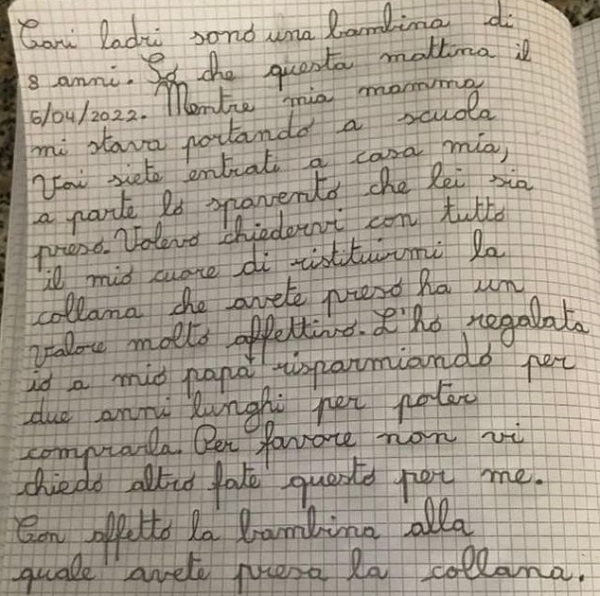 Cari ladri sono una bambina di
8 anni. So che questa mattina il
6/04/2022. Mentre mia mamma
mi stava portando a scuola
Voi siete entrati a casa mia,
a parte lo spavento che lei sia
preso. Volevo chiedervi con tutto
il mio cuore di ristituirmi la
collana che avete preso ha un
Valore molto affettivo. L'ho regalata
io a mio papà risparmiando per
due anni lunghi per poter
comprarla. Per favore non vi
chiedo altro fate questo per me.
Con affetto la bambina alla
quale avete preso la collana.